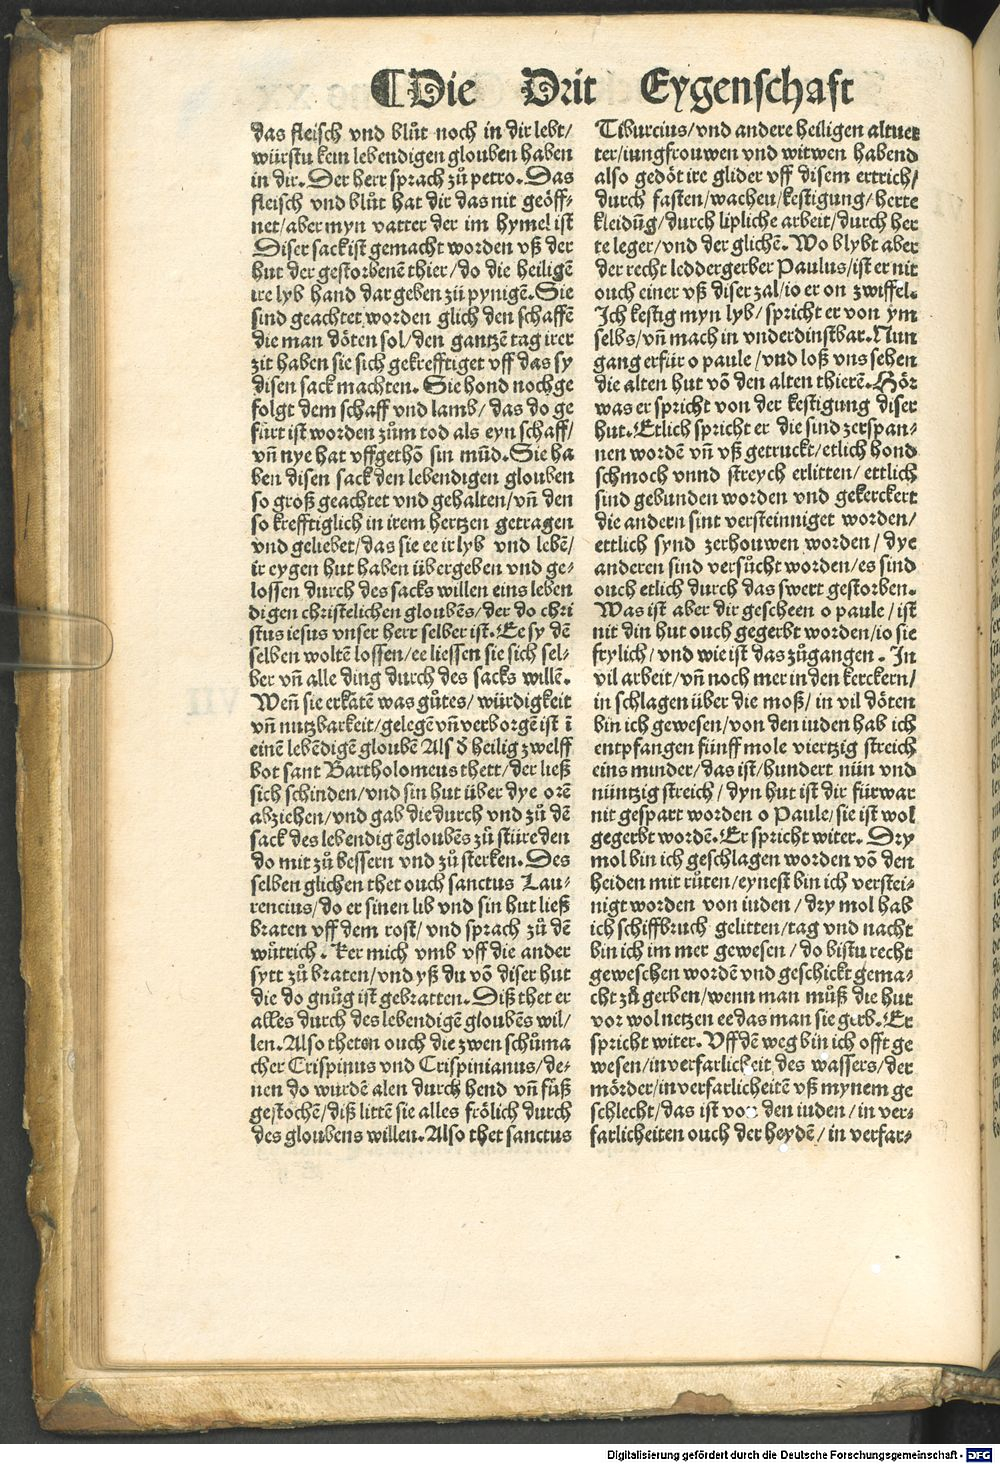 ¶Die Drit Eygenschaft
das fleisch vnd blůt noch in dir lebt/
würstu kein lebendigen glouben haben
in dir. Der herr sprach zů petro. Das
fleisch vnd blůt hat dir das nit geöff-
net/aber myn vatter der im hymel ist
Diser sack ist gemacht worden vß der
hut der gestorbenē thier/do die heiligē
ire lyb hand dar geben zů pynigē. Sie
sind geachtet worden glich den schaffē
die man döten sol/den gantzē tag irer
zit haben sie sich gekrefftiget vff das sy
disen sack machten. Sie hond nochge
folgt dem schaff vnd lamb/ das do ge
fürt ist worden zům tod als eyn schaff/
vñ nye hat vffgethō sin mūd. Sie ha
ben disen sack den lebendigen glouben
so groß geachtet vnd gehalten/vñ den
so krefftiglich in irem hertzen getragen
vnd geliebet/das sie ee ir lyb vnd lebē/
ir eygen hut haben übergeben vnd ge-
lossen durch des sacks willen eins leben
digen christelichen gloubēs/der do chri
stus iesus vnser herr selber ist. Ee sy dē
selben woltē lossen/ee liessen sie sich sel-
ber vñ alle ding durch des sacks willē.
Weñ sie erkātē was gůtes/ würdigkeit
vñ nutzbarkeit/gelegē vñ verborgē ist ī
einē lebēdigē gloubē Als d̄ heilig zwelff
bot sant Bartholomeus thett/der ließ
sich schinden/vnd sin hut über dye orē
abziehen/vnd gab die durch vnd zů dē
sack des lebendig ē gloubēs zů stüre den
do mit zů bessern vnd zů sterken. Des
selben glichen thet ouch sanctus Lau-
rencius/do er sinen lib vnd sin hut ließ
braten vff dem rost/ vnd sprach zů dē
wůtrich. Ker mich vmb vff die ander
sytt zů braten/vnd yß du vō diser hut
die do gnůg ist gebratten. Diß thet er
alles durch des lebendigē gloubēs wil/
len. Also theten ouch die zwen schůma
cher Crispinus vnd Crispinianus/de-
nen do wurdē alen durch hend vñ füß
gestochē/diß littē sie alles frölich durch
des gloubens willen. Also thet sanctus
Tiburcius/vnd andere heiligen altuet
ter/iungfrouwen vnd witwen habend
also gedöt ire glider vff disem ertrich/
durch fasten/wachen/kestigung/herte
kleidūg/durch lipliche arbeit/durch her
te leger/vnd der glichē. Wo blybt aber
der recht leddergerber Paulus/ist er nit
ouch einer vß diser zal/io er on zwiffel.
Ich kestig myn lyb/ spricht er von ym
selbs/vñ mach in vnderdinstbar. Nun
gang erfür o paule/vnd loß vns sehen
die alten hut vō den alten thierē. Hör
was er spricht von der kestigung diser
hut. Etlich spricht er die sind zerspan-
nen wordē vñ vß getruckt/etlich hond
schmoch vnnd streych erlitten/ ettlich
sind gebunden worden vnd gekerckert
die andern sint versteinniget worden/
ettlich synd zerhouwen worden/ dye
anderen sind versůcht worden/es sind
ouch etlich durch das swert gestorben.
Was ist aber dir gescheen o paule/ist
nit din hut ouch gegerbt worden/io sie
frylich/ vnd wie ist das zůgangen. In
vil arbeit/vñ noch mer in den kerckern/
in schlagen über die moß/ in vil döten
bin ich gewesen/von den iuden hab ich
entpfangen fünff mole viertzig streich
eins minder/das ist/hundert nün vnd
nüntzig streich/ dyn hut ist dir fürwar
nit gespart worden o Paule/sie ist wol
gegerbt wordē. Er spricht witer. Dry
mol bin ich geschlagen worden vō den
heiden mit růten/eynest bin ich verstei-
nigt worden von iuden/dry mol hab
ich schiffbruch gelitten/tag vnd nacht
bin ich im mer gewesen/do bistu recht
geweschen wordē vnd geschickt gema-
cht zů gerben/wenn man můß die hut
vor wol netzen ee das man sie gerb. Er
spricht witer. Vff dē weg bin ich offt ge
wesen/in verfarlicheit des wassers/der
mörder/in verfarlicheitē vß mynem ge
schlecht/das ist von den iuden/in ver-
farlicheiten ouch der heydē/in verfar-
Digitalisierung gefördert durch die Deutsche Forschungsgemeinschaft - DFG